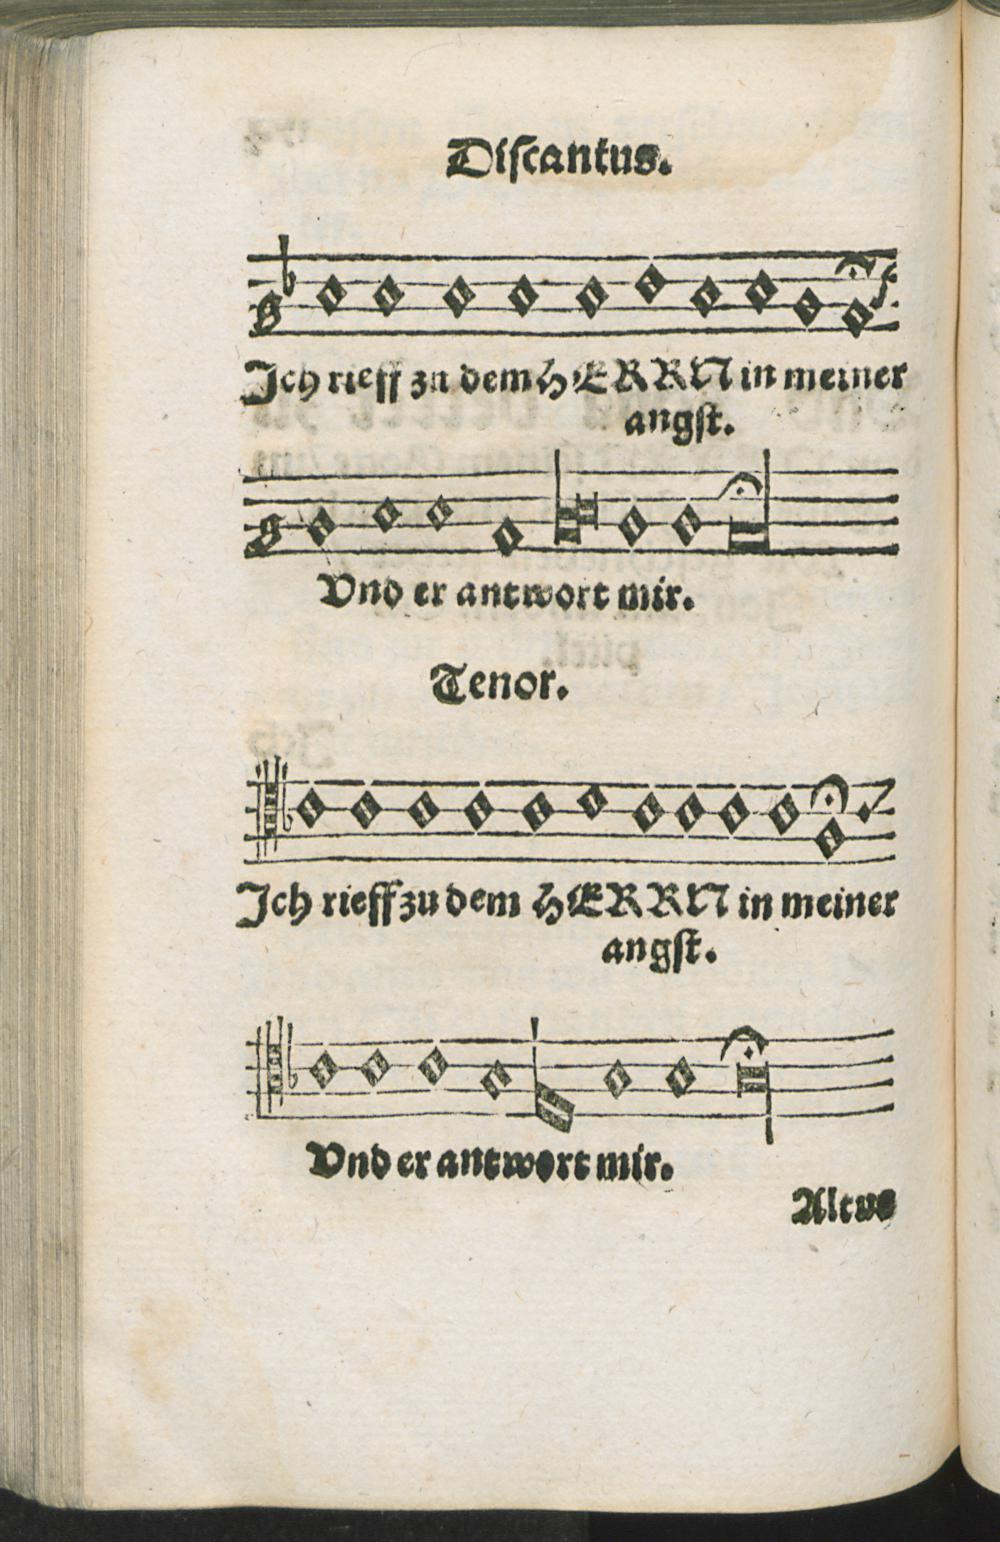 Diſcantus.
Ich rieff zu dem HERRN in meiner
angſt.
Vnd er antwort mir.
Tenor.
Ich rieff zu dem HERRN in meiner
angſt.
Vnd er antwort mir.
Altus